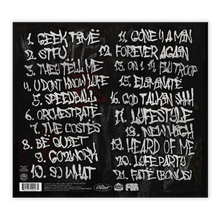 1. GEEK TIME
2. STFU
3. THEY TELL ME
4. U DONT KNOW LYFE
5. SPEEDBALL
6. ORCHESTRATE
7. THE COSTES
8. BE QUIET
9. GO2WORK
10. SO WHAT
11. GONE 4 A MIN
12. FOREVER AGAIN
13. ON 1 / PILL TROOP
15. ELIMINATE
16. GOD TALKIN SHH
17. LYFESTYLE
18. NEW HIGH
19. HEARD OF ME
20. LYFE PARTY
21. FATE (BONUS)